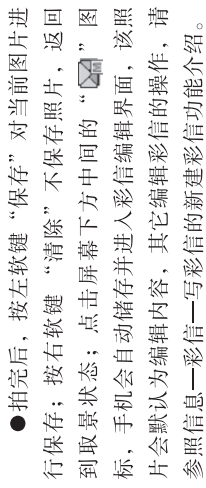 ●拍完后，按左软键“保存”对当前图片进
行保存；按右软键“清除”不保存照片，返回
到取景状态；点击屏幕下方中间的“”图
标，手机会自动储存并进入彩信编辑界面，该照
片会默认为编辑内容，其它编辑彩信的操作，请
参照信息—彩信—写彩信的新建彩信功能介绍。